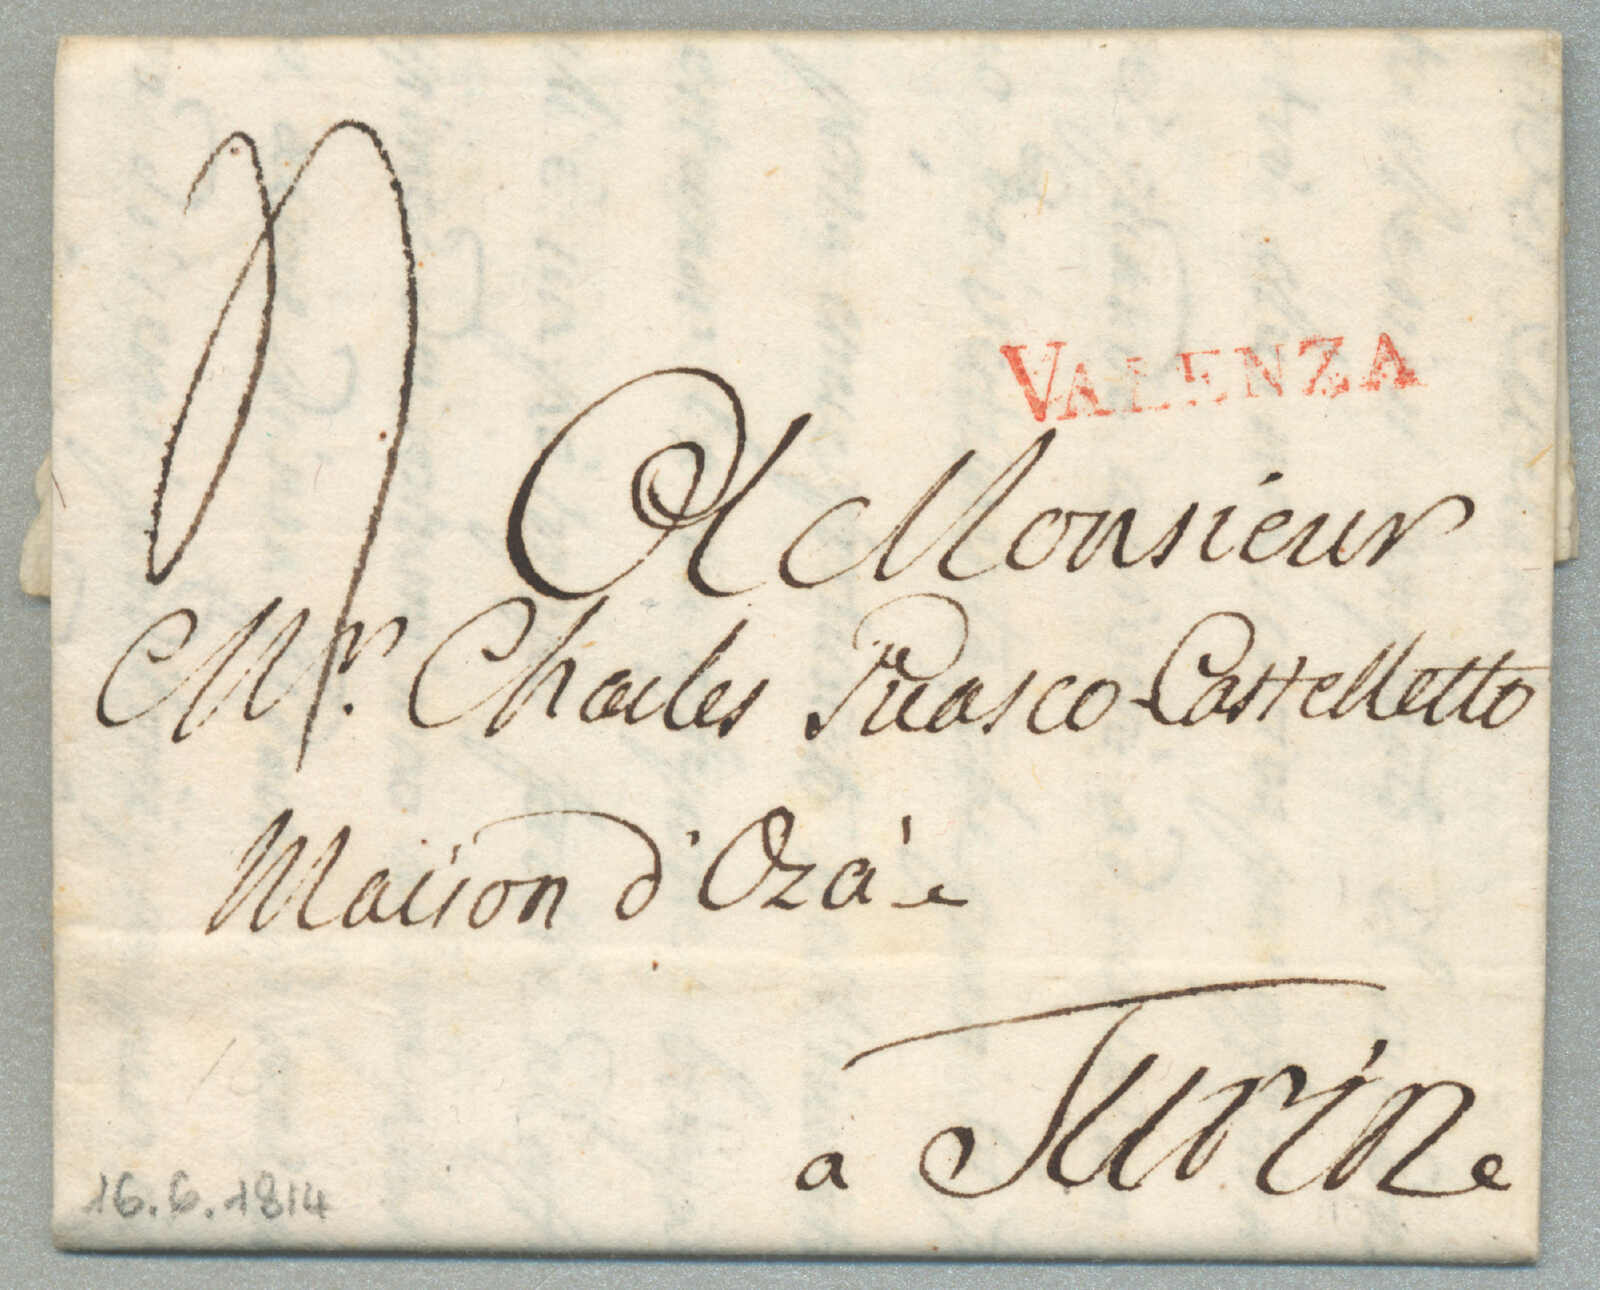 VALENZA
A Monsieur
Mr. Charles Pruasco Castelletto
Maison d'Ozá
à Turin
16.6.1814